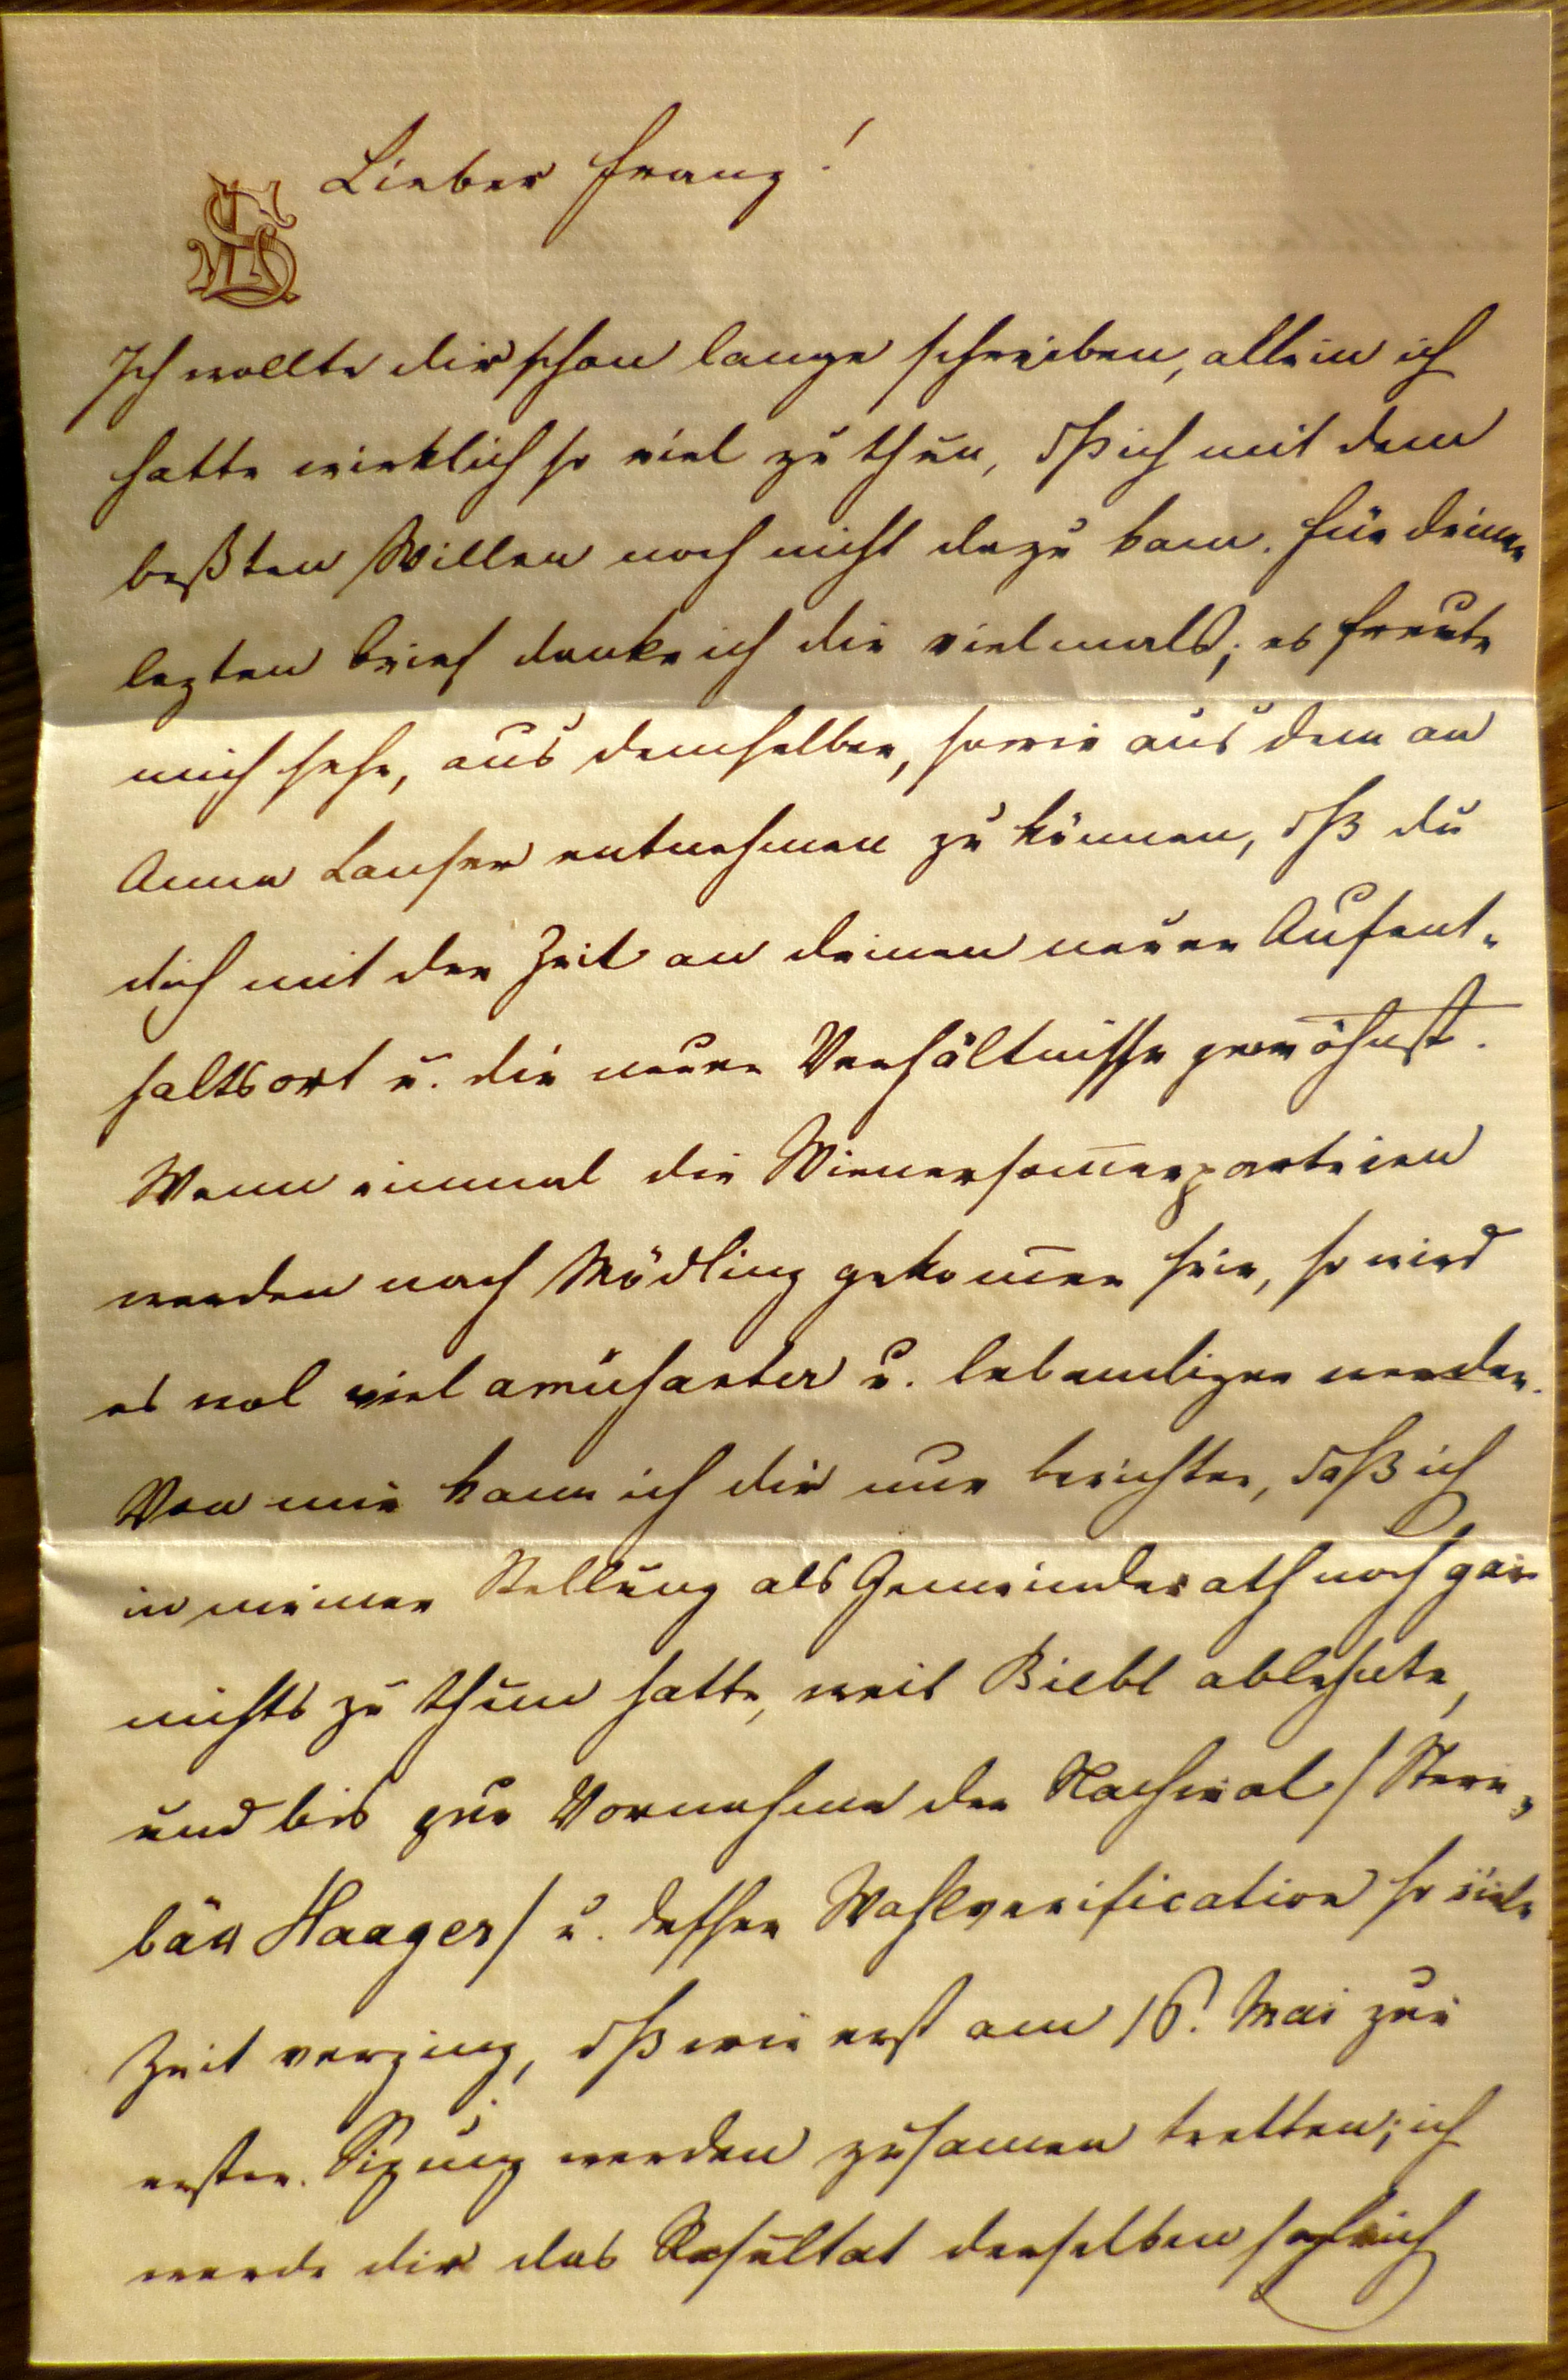 Lieber Franz!
Ich wollte dir schon lange schreiben, allein ich
hatte wirklich so viel zu thun, dß ich mit dem
beßten Willen noch nicht dazu kam. Für deinen
lezten Brief danke ich dir vielmals; es freute
mich sehr, aus demselben, sowie aus dem an
Anna Lanser entnehmen zu können, dß du
dich mit der Zeit an deinen neuen Aufent-
haltsort u. die neuen Verhältnisse gewöhnst.
Wenn einmal die Wienersom̅erparteien
werden nach Mödling gekom̅en sein, so wird
es wol viel amüsanter u. lebendiger werden.
Von mir kann ich dir nur berichten, daß ich
in meiner Stellung als Gemeinderath noch gar
nichts zu thun hatte, weil Biebl ablehnte,
und bis zur Vornahme der Nachwal / Stern-
bäu Haager / u. dessen Wahlverification so viele
Zeit verging, dß wir erst am 16. Mai zur
ersten Sizung werden zusamen tretten; ich
werde dir das Resultat derselben sogleich